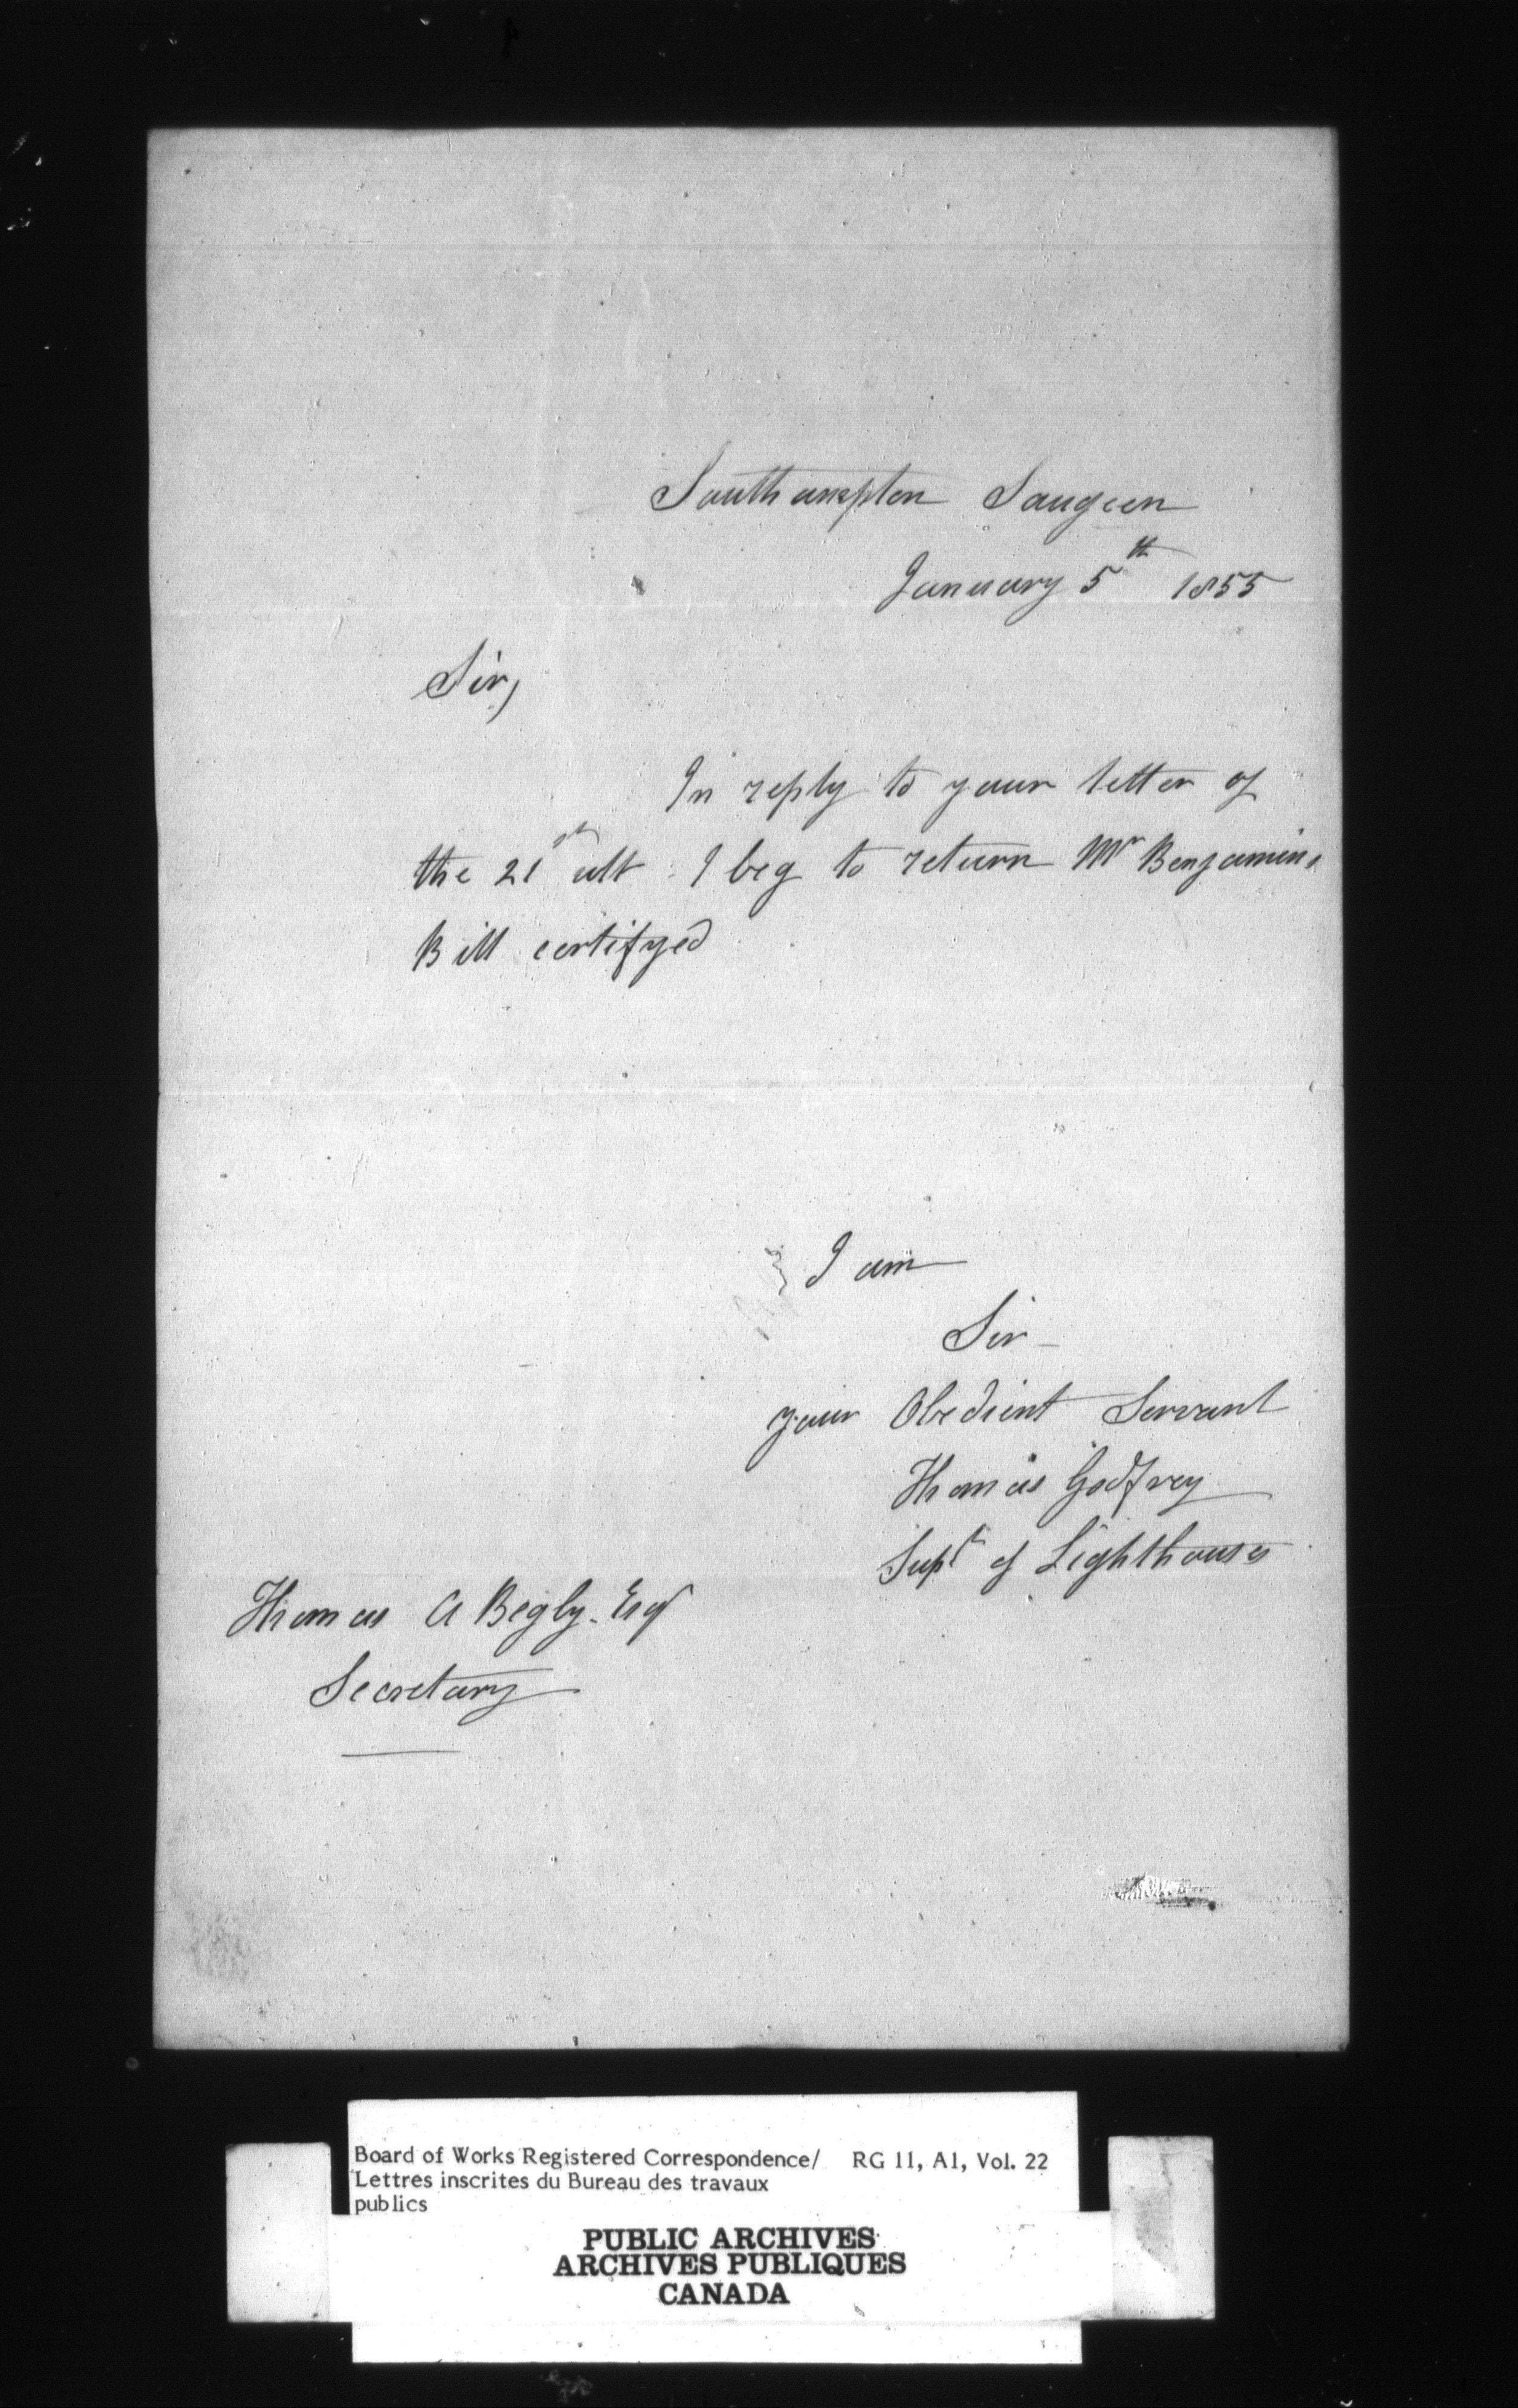 Southampton Saugeen
January 5th 1855
Sir,
In reply to your letter of
the 21st ult I beg to return Mr Benjamins
Bill certifyed
I am
Sir
your Obedient Servant
Thomas Godfrey
Supt of Lighthouses
Thomas A Begly Esqr
Secretary
Board of Works Registered Correspondence/ RG 11, A1, Vol. 22
Lettres inscrites du Bureau des travaux
publics
PUBLIC ARCHIVES
ARCHIVES PUBLIQUES
CANADA